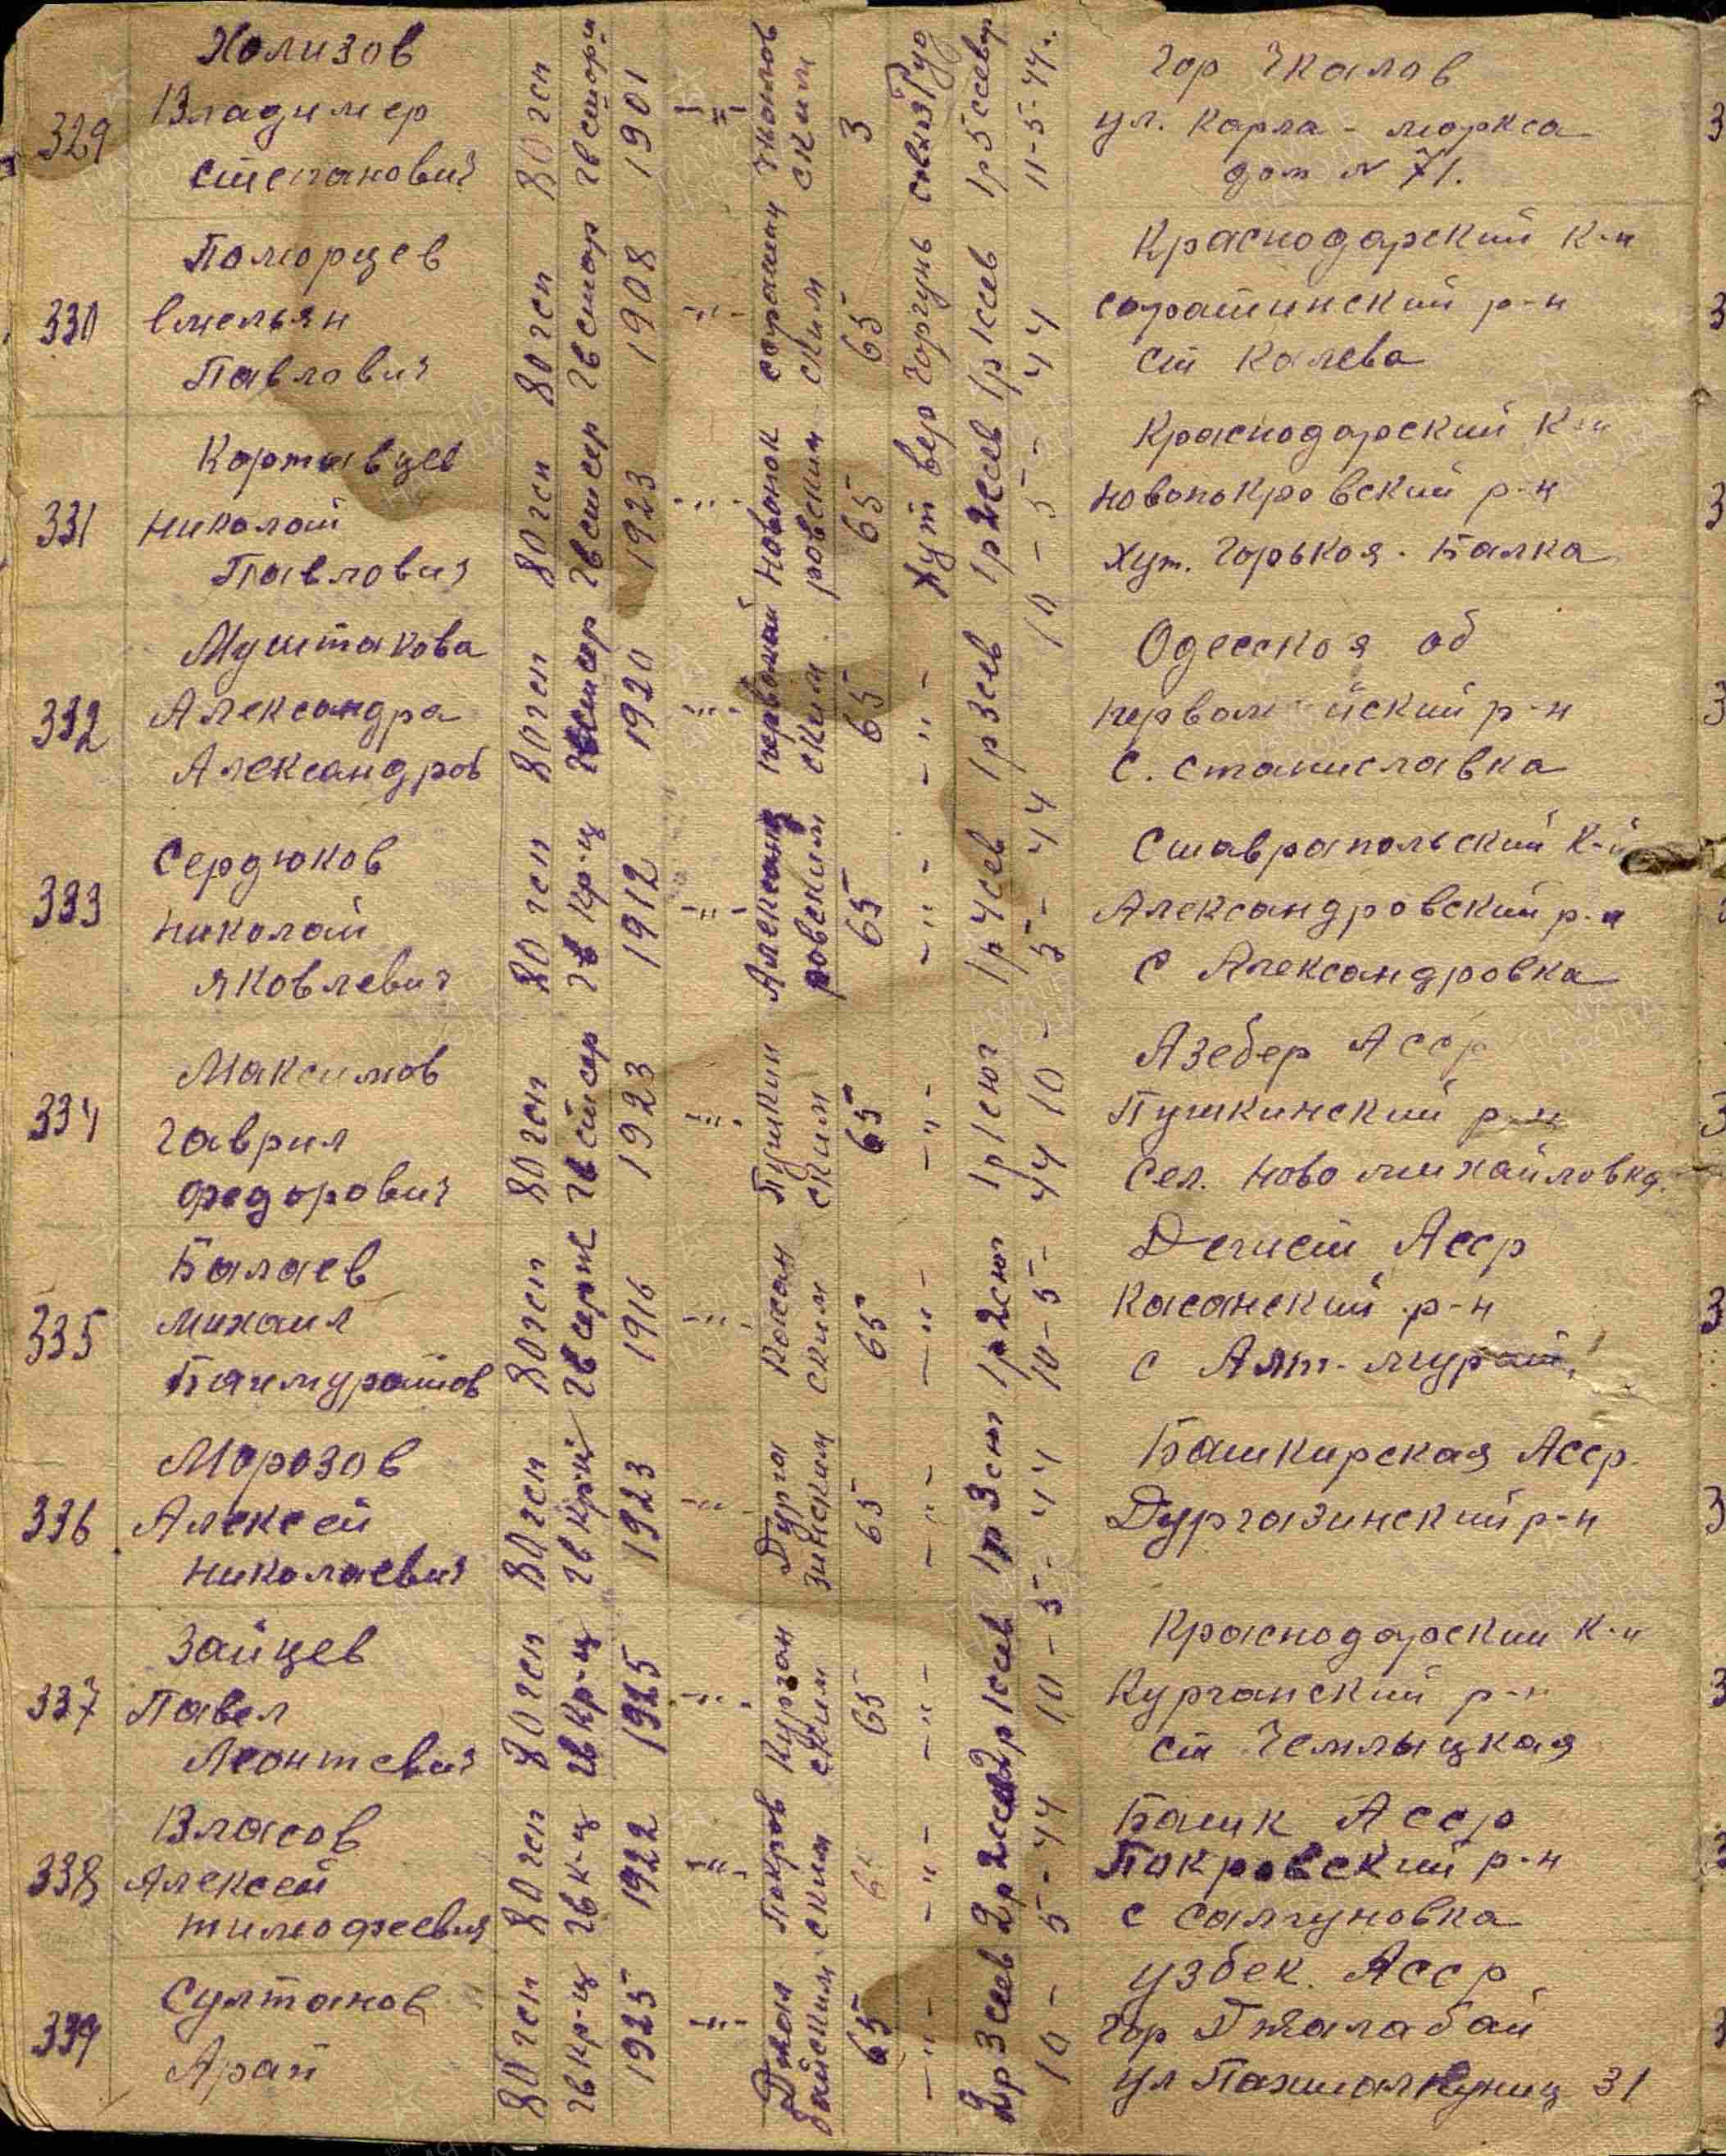 329
Холизов
Владимер
степанович
80 гсп
гв стори
1901
-"-
чкалов
ским
3
1р 5 ссевер
11-5-44г.
Гор Чкалов
ул. Карла-маркса
дом N 71.
330
Поморцев
Емельян
Павлович
80 гсп
гв стор
1908
-"-
саратин
ским
65
Хут вер Горгунь
1р 1 ссев
Краснодарский К-й
саратинский р-н
ст Калева
331
Кортавцев
Николай
Павлович
80 гсп
гв стсер
1923
-"-
Новопок
ровским
65
1р 2 ссев
10-5-44
Краснодарский К-й
новопокровский р-н
Хут. Горькоя-Балка
332
Муштакова
Александра
Александров
80 гсп
гв стсер
1920
-"-
первомай
ским
65
-"-
1р 3 сев
Одесская об
первомайский р-н
с. станиславка
333
Сердюков
Николай
яковлевич
80 гсп
гв кр-ц
1912
-"-
Александ
ровским
65
-"-
1р 4 сев
5-44
Ставрапольский К-й
Александровский р-н
с Александровка
334
Максимов
Гаврил
Федорович
80 гсп
гв стсер
1923
-"-
Пушкин
ским
65
-"-
1р 1 сюг
10-
Азебер Асср
Пушкинский р-н
Сел. Ново михайловка.
335
Балаев
михаил
Баймуратов
80 гсп
гв серж
1916
-"-
Косан
ским
65
-"-
1р 2 сюг
10-5-44
Касанский р-н
с Аят-мурат
336
Морозов
Алексей
николаевич
80 гсп
гв кр-ц
1923
-"-
Дурга
зинским
65
-"-
1р 3 сюг
Башкирская Асср
Дургазинский р-н
337
Зайцев
Павел
Леонтевич
80 гсп
гв кр-ц
1925
-"-
Курган
ским
65
-"-
2р 1 ссев
10-5-44
Краснодарский К-й
Курганский р-н
ст Чемлыцкая
338
Власов
Алексей
тимофеевич
80 гсп
гв к-ц
1922
-"-
Покров
ским
-"-
2р 2 ссев
5-44
Башк Асср
Покровский р-н
с салгуновка
339
Султанов
Арап
80 гсп
гв кр-ц
1925
-"-
Джал
байским
65
-"-
2р 3 ссев
10-
узбек. Асср
гор Джалабай
31